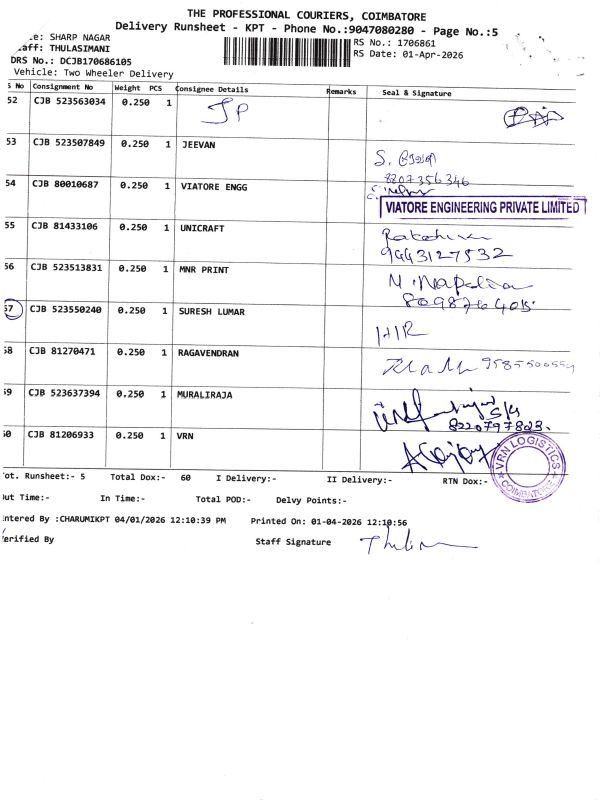 THE PROFESSIONAL COURIERS, COIMBATORE
Delivery Runsheet - KPT - Phone No.:9047080280 - Page No.:5
le: SHARP NAGAR
aff: THULASIMANI
RS No.: 1706861
DRS No.: DCJB170686105
RS Date: 01-Apr-2026
Vehicle: Two Wheeler Delivery
S No Consignment No Weight PCS Consignee Details Remarks Seal & Signature
52 CJB 523563034 0.250 1 JP
53 CJB 523507849 0.250 1 JEEVAN
8807356346
54 CJB 80010687 0.250 1 VIATORE ENGG
VIATORE ENGINEERING PRIVATE LIMITED
55 CJB 81433106 0.250 1 UNICRAFT
9443127532
56 CJB 523513831 0.250 1 MNR PRINT
57 CJB 523550240 0.250 1 SURESH LUMAR
58 CJB 81270471 0.250 1 RAGAVENDRAN
59 CJB 523637394 0.250 1 MURALIRAJA
8220797823.
60 CJB 81206933 0.250 1 VRN
VRN LOGISTICS
COIMBATORE
ot. Runsheet:- 5 Total Dox:- 60 I Delivery:- II Delivery:- RTN Dox:-
Out Time:- In Time:- Total POD:- Delvy Points:-
ntered By :CHARUMIKPT 04/01/2026 12:10:39 PM Printed On: 01-04-2026 12:10:56
erified By Staff Signature